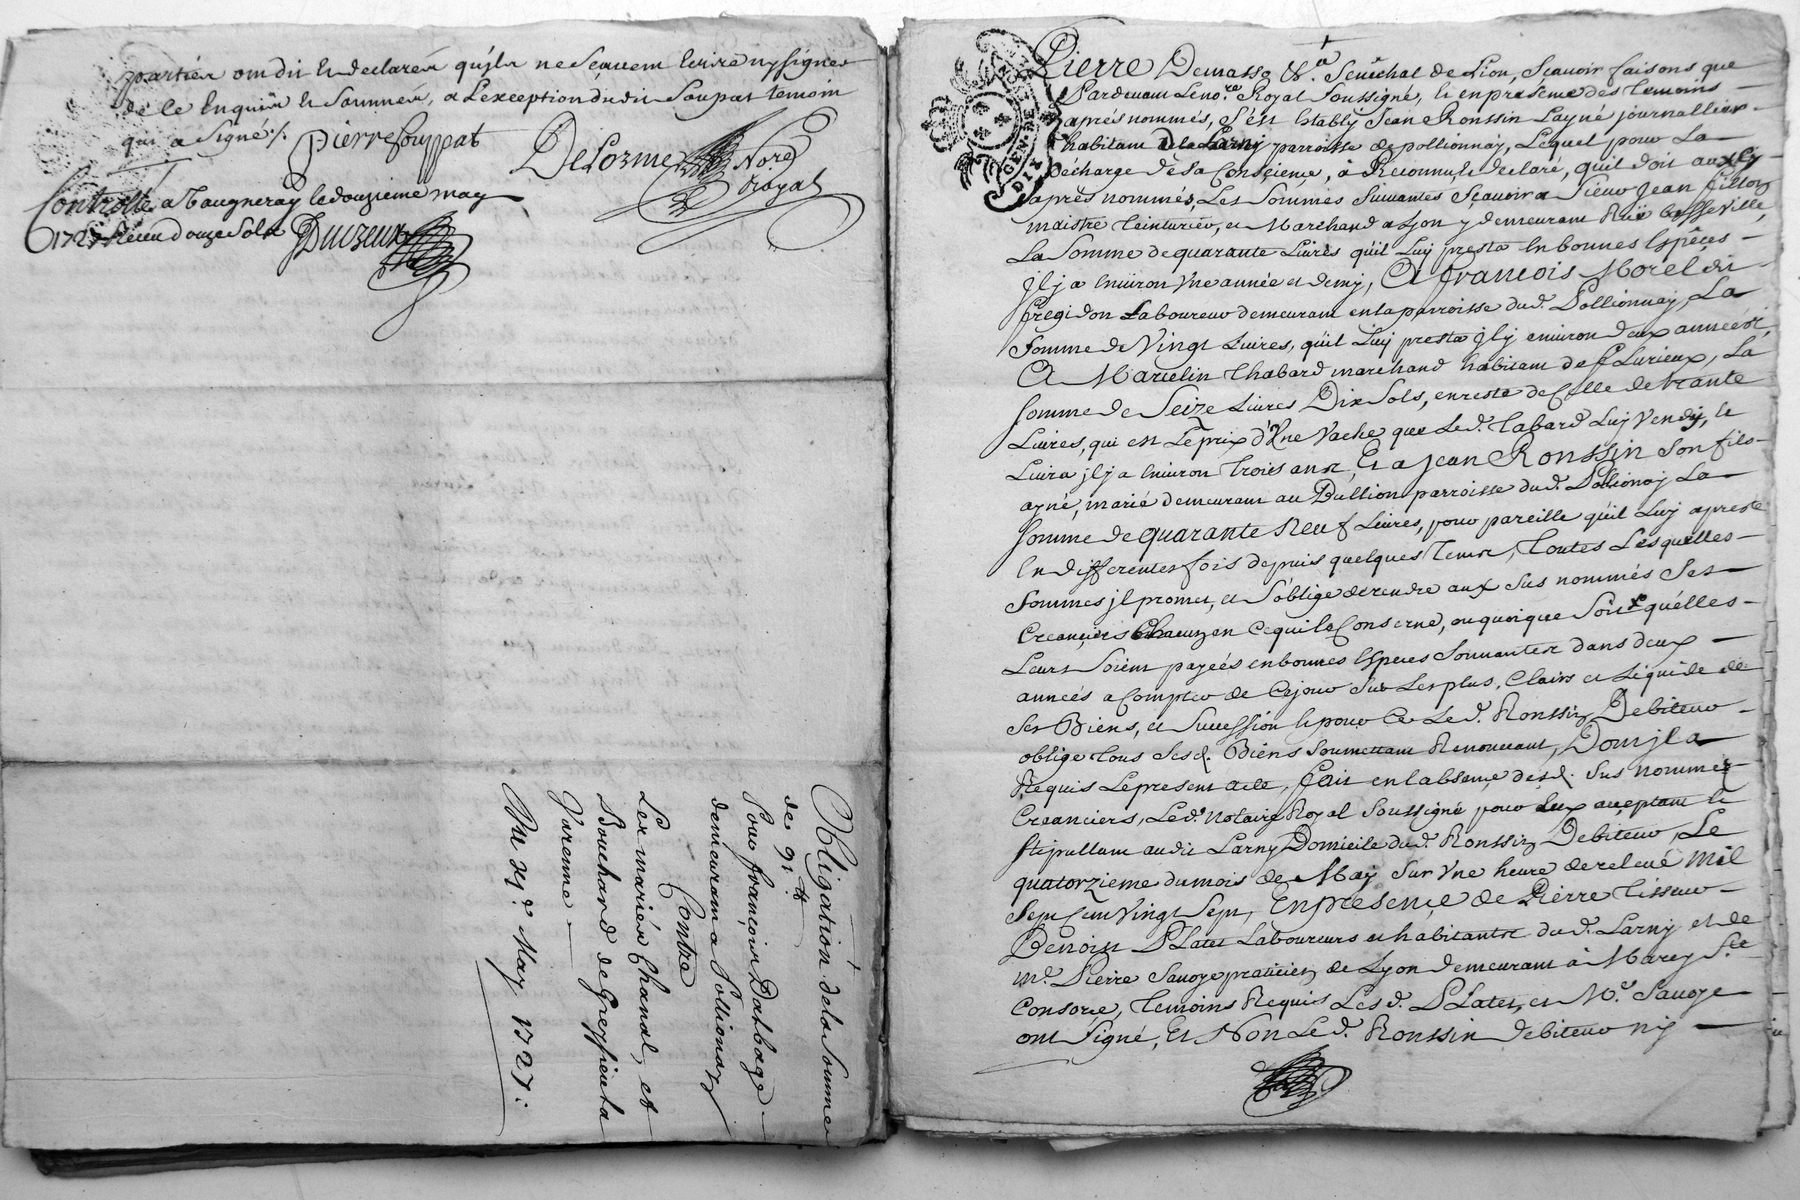 parties ont dit et declarer qu'ils ne sçavent écrire ny signer
de ce Enquis et Sommés, a L'exception dudit Soupat temoin
qui a Signé /.
pierre Souppat
DeLorme Nore Royal
Controllé a Vaugneray le douzieme may
1727 Receu douze Sols
Duizeux
Obligation de la Somme
de 91 ₶
Pour François Dabbage
demeurant a Pollionay
Contre
Les mariés Chanal, et
Bouchard de Greyzieu la
Varenne
Du XI.e May 1727:
Pierre Demasso &.a Senêchal de Lion, Sçavoir faisons que
Pardevant Le no.re Royal Soussigné, et en presence des temoins
après nommés, S'est Etably Jean Ronssin Layné journallier
habitant de la Larny parroisse de pollionnay, Lequel pour La
décharge de Sa Conscience, à Reconnu et declaré, quil doit aux cy
après nommés, Les Sommes Suivantes Sçavoir a Sieur Jean fillon
maistre teinturier, et Marchand a Lyon y demeurant Rüe
La Somme de quarante Livres qu'il Luy presta En bonnes Espêces
jl y a Environ Une année et demy, A francois Morel dit
fregidon Laboureur demeurant en la parroisse dud. Pollionnay, La
Somme de Vingt Livres, qu'il Luy presta jl y environ deux années,
A Marcelin thabard marchand habitant de fLurieux, La
Somme de Seize Livres Dix Sols, en reste de Celle de trante
Livres, qui est Le prix d'Une Vache que Led. tabard Luy Vendy, et
Livra jl y a Environ trois ans, Et a Jean Ronssin Son fils
ayné, marié demeurant au Bullion parroisse dud. Pollionay La
Somme de quarante Neuf Livres, pour pareille qu'il Luy a presté
En differentes fois depuis quelques tems, toutes Lesquelles
Sommes jl promet, et S'oblige de rendre aux Sus nommés Ses
Creanciers Chacun en Ce qui le Conserne, ou quoique Soit qu'elles
Leurs Soient payeés en bonnes Especes Sonnantes dans deux
anneés a Compter de Ce jour Sur Les plus, Clairs et Liquide de
Ses Biens, et Succession Et pour Ce Led. Ronssin Debiteur
oblige tous Sesd. Biens Soumettant Renonceant, Dont jl a
Requis Le present acte, fait en l'absence desd. Sus nommés
Creanciers, Led. Notaire Royal Soussigné pour Eux acceptant et
Stipullant audit Larny Domicile dud. Ronssin Debiteur, Le
quatorzieme du mois de May Sur Une heure de relevé Mil
Sept Cent Vingt Sept, En presence de Pierre tisseur
Benoist PLatet Laboureurs et habitants dud. Larny et de
m.e Pierre Savoye praticien de Lyon demeurant à Marcy S.te
Consorce, temoins Requis Lesd. PLatet, et M.e Savoye
ont Signé, Et Non Led. Ronssin debiteur ny